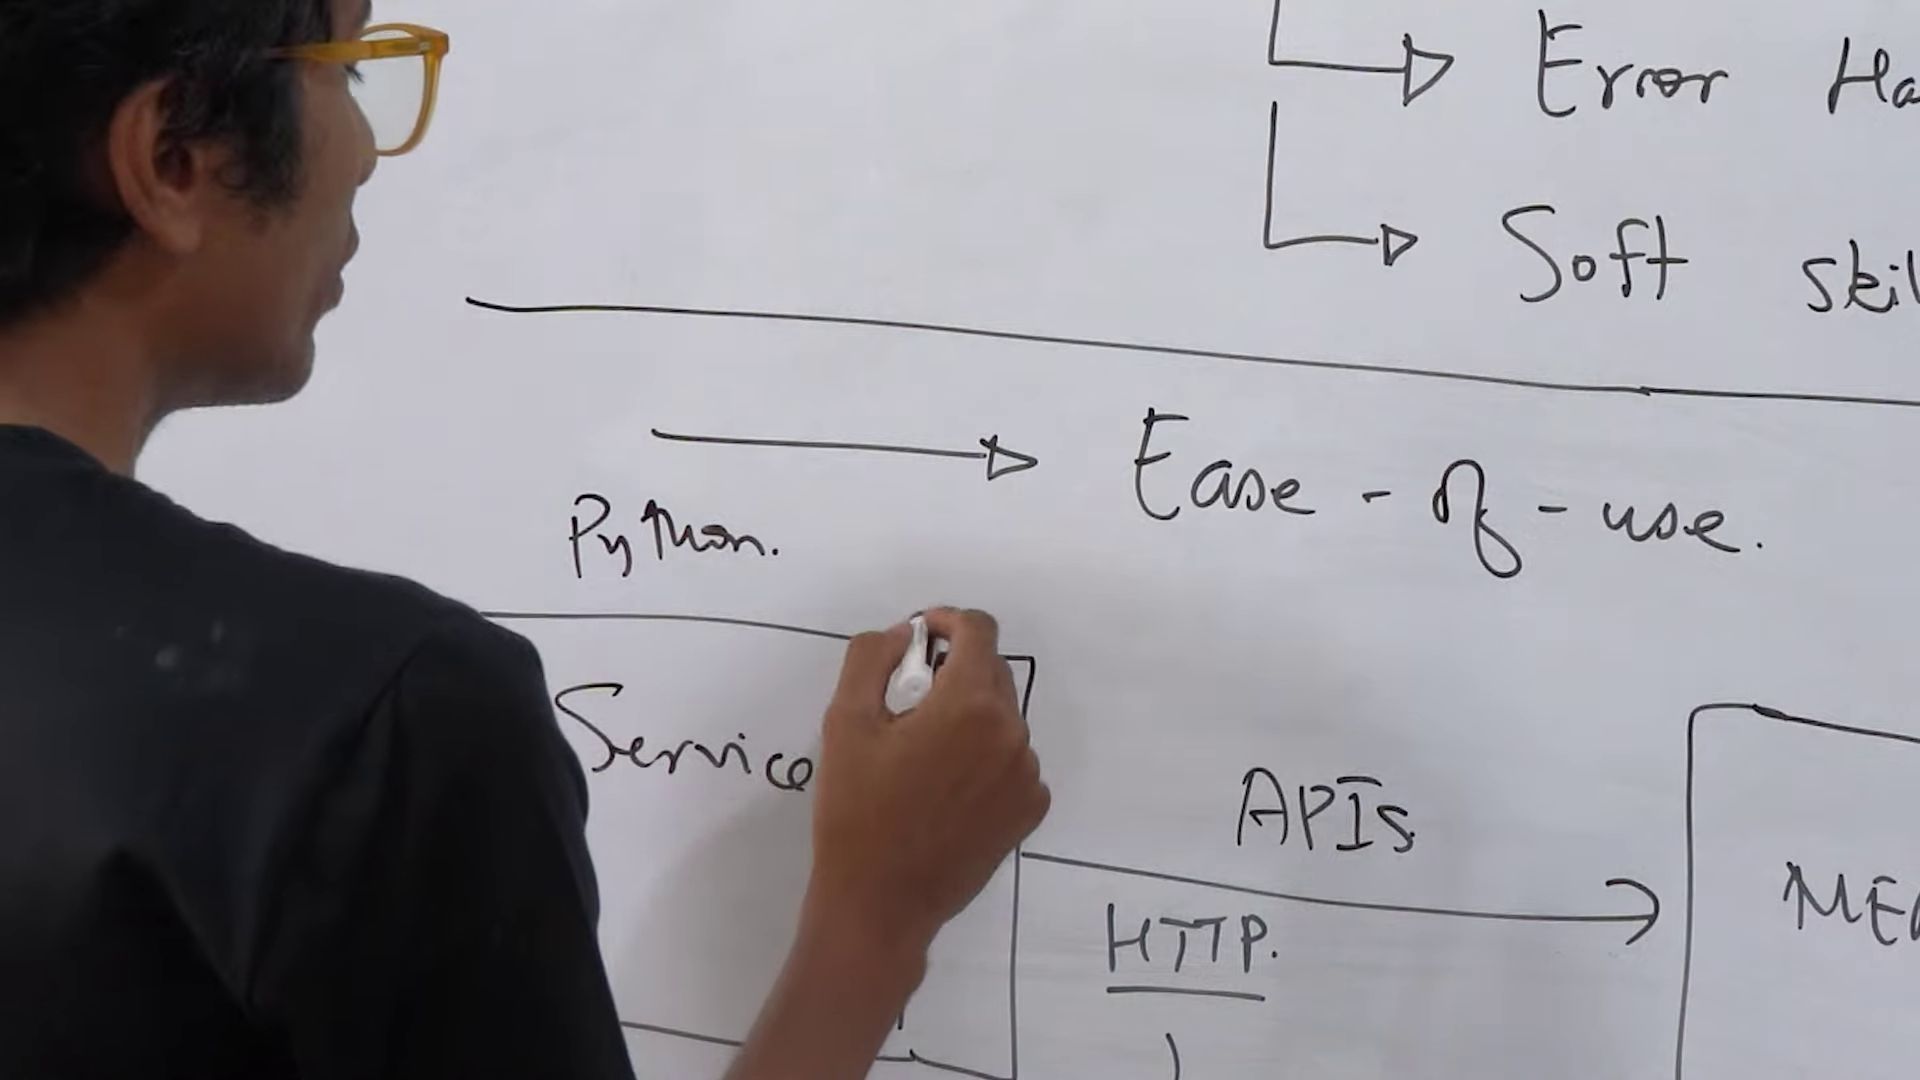 Error
Soft
Ease-of-use.
Python.
Service
APIs
HTTP.